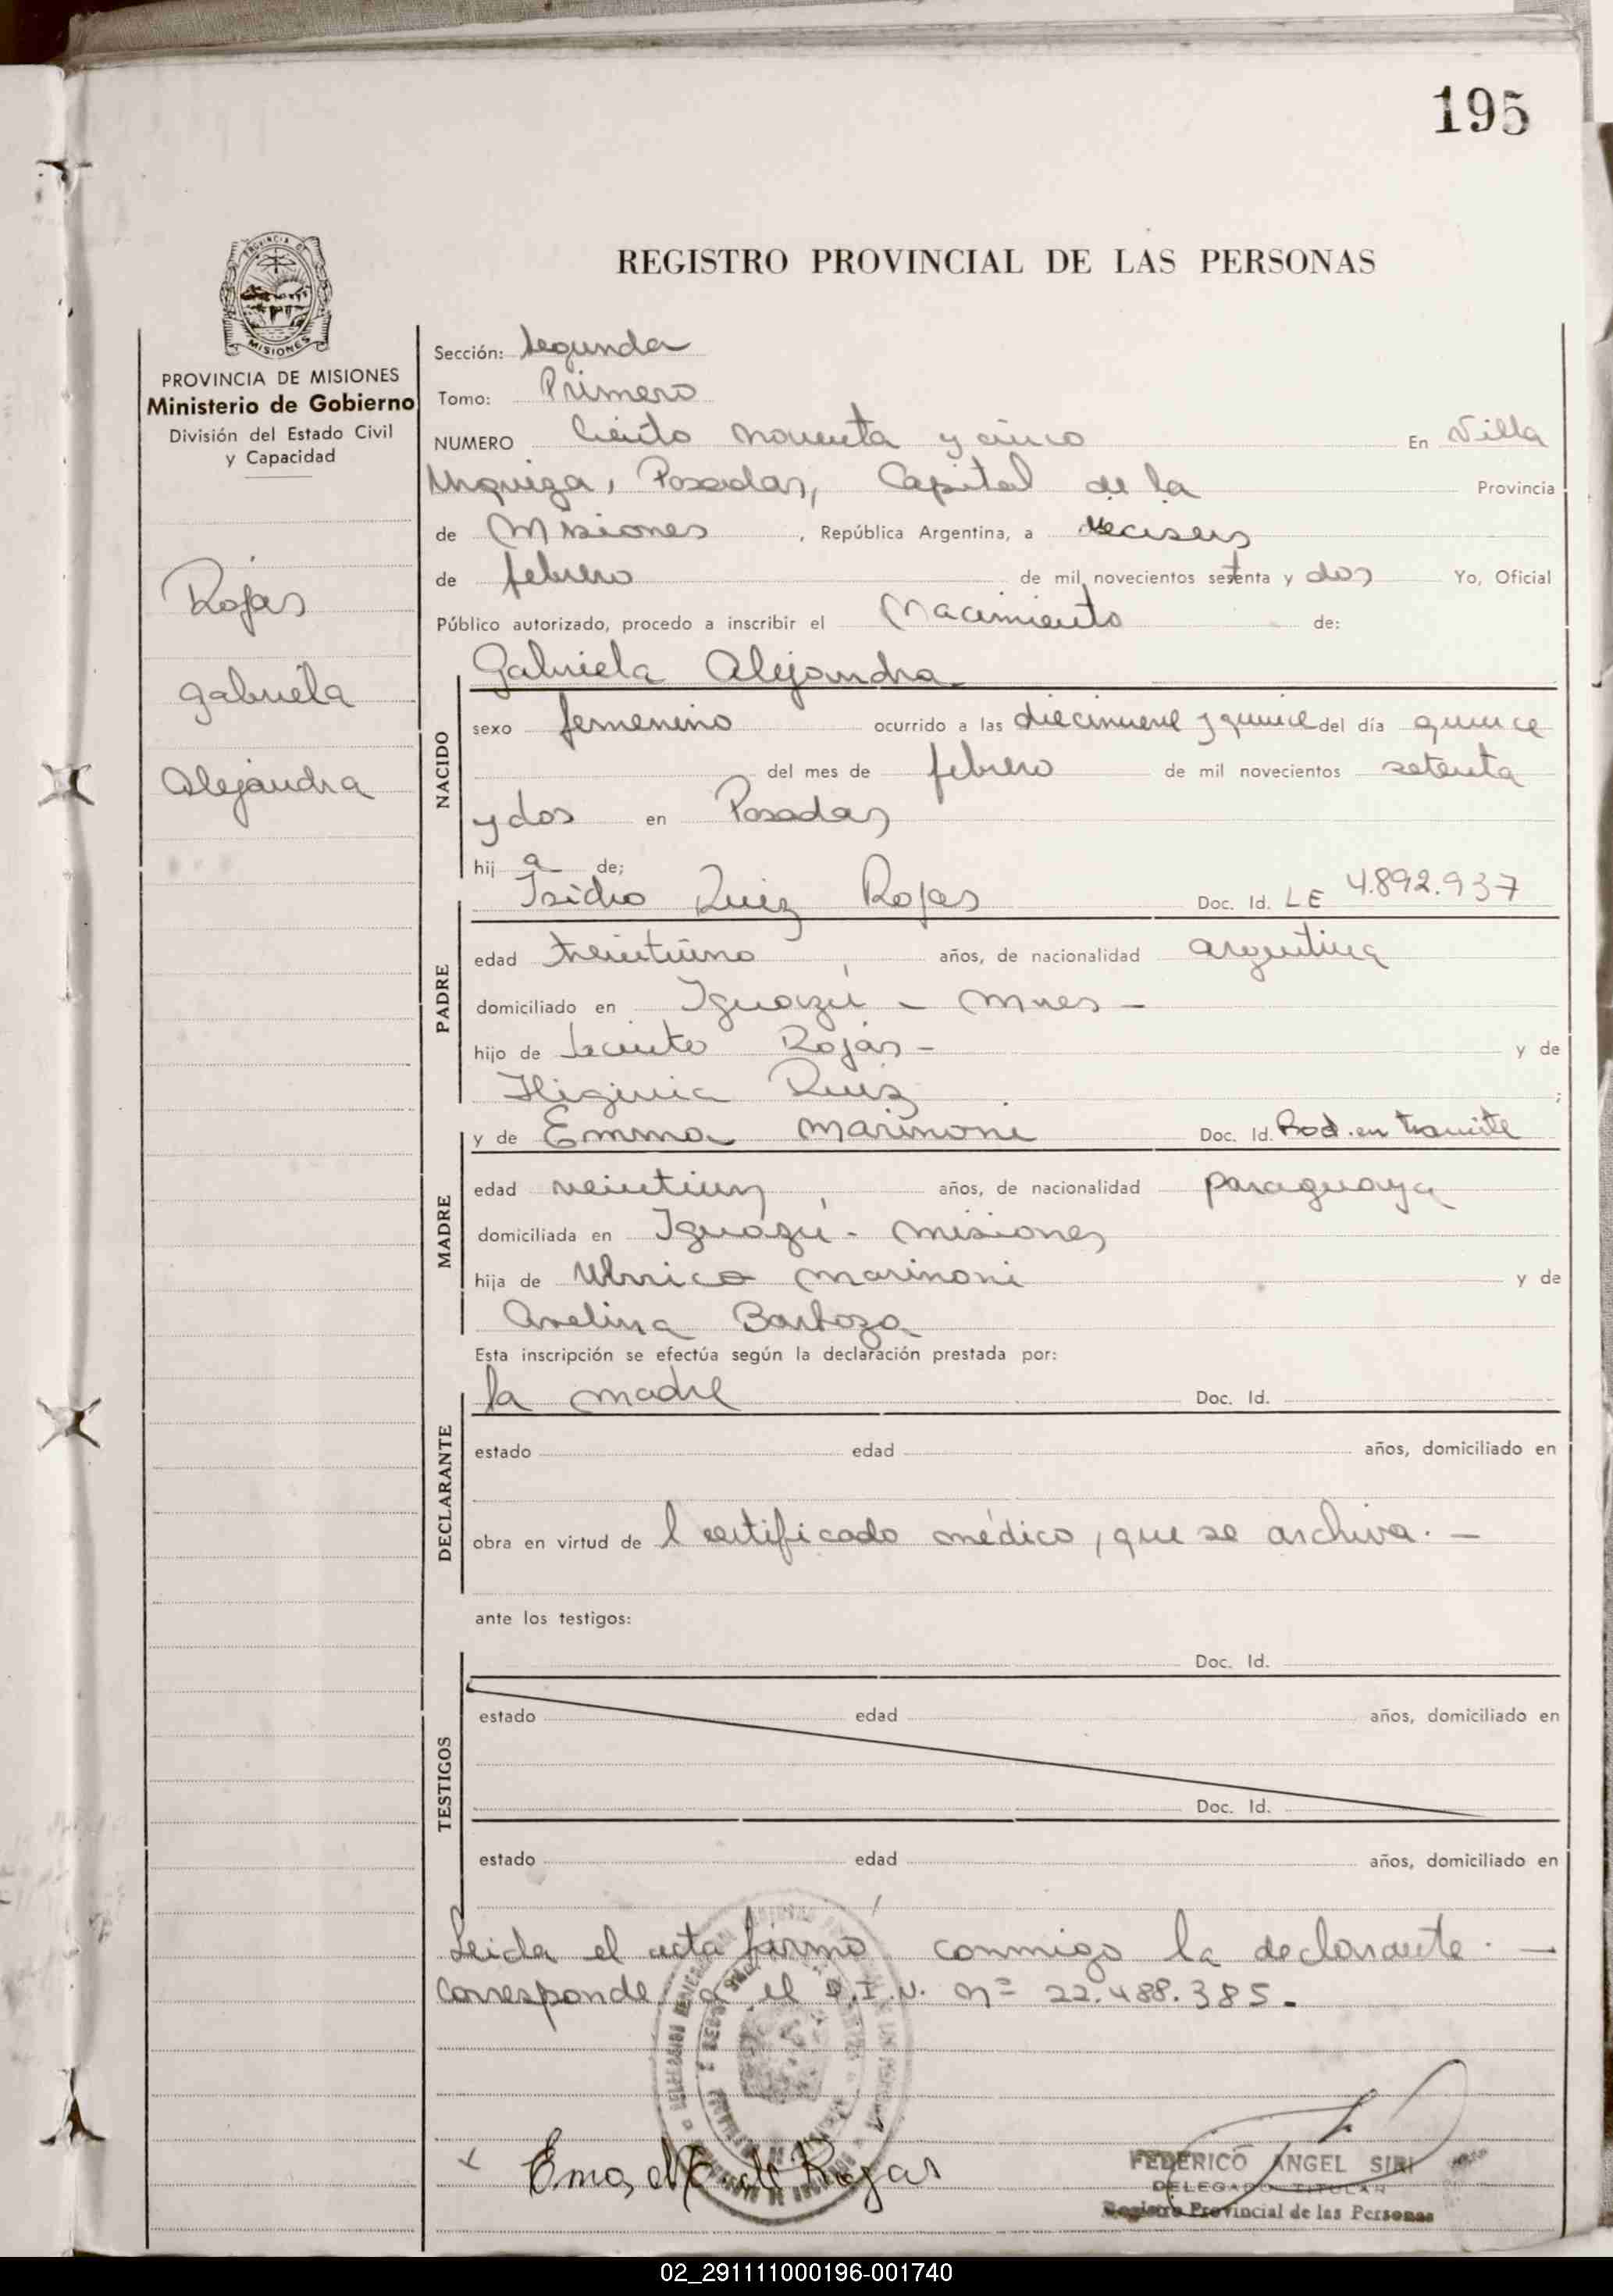 195
REGISTRO PROVINCIAL DE LAS PERSONAS
MISIONES
PROVINCIA DE MISIONES
Ministerio de Gobierno
División del Estado Civil
y Capacidad
Rojas
Gabriela
Alejandra
Sección: Segunda
Tomo: Primero
NUMERO Ciento noventa y cinco En Villa
Urquiza, Posadas, Capital de la Provincia
de Misiones, República Argentina, a dieciseis
de febrero de mil novecientos setenta y dos Yo, Oficial
Público autorizado, procedo a inscribir el Nacimiento de:
Gabriela Alejandra
NACIDO
sexo femenino ocurrido a las diecinueve y quince del día quince
del mes de febrero de mil novecientos setenta
y dos en Posadas
hij a de;
PADRE
Isidro Ruiz Rojas Doc. Id. LE 4.892.937
edad treintiuno, años, de nacionalidad argentina
domiciliado en Iguazú - Mnes -
hijo de Jacinto Rojas - y de
Higinia Ruiz ;
MADRE
y de Emma Marinoni Doc. Id. Rad. en tramite
edad veintiun, años, de nacionalidad paraguaya
domiciliada en Iguazú - Misiones
hija de Ulrrico Marinoni y de
Avelina Barboza
Esta inscripción se efectúa según la declaración prestada por:
DECLARANTE
la madre Doc. Id.
estado edad años, domiciliado en
obra en virtud de l certificado médico, que se archiva. -
ante los testigos:
TESTIGOS
Doc. Id.
estado edad años, domiciliado en
Doc. Id.
estado edad años, domiciliado en
Leida el acta firmó conmigo la declarante. -
Corresponde a el D.I.N. Nº 22.488.385.-
Ema M. de Rojas
FEDERICO ANGEL SIRI
DELEGADO TITULAR
Registro Provincial de las Personas
02_291111000196-001740